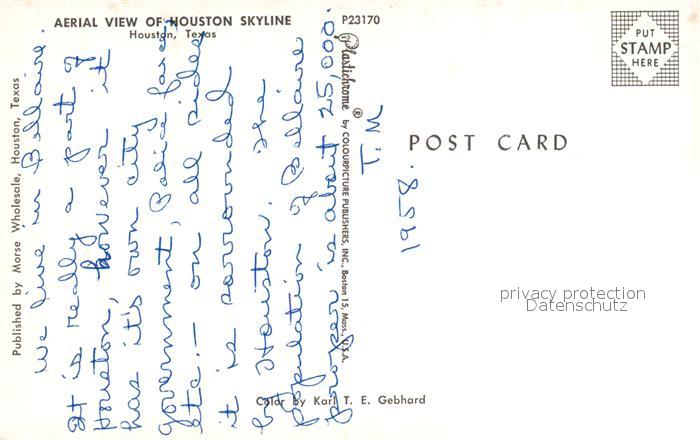 AERIAL VIEW OF HOUSTON SKYLINE
Houston, Texas
P23170
PUT
STAMP
HERE
Published by Morse Wholesale, Houston, Texas
we live in Bellaire.
It is really a part of
Houston, however it
has it's own city
government, Police force
etc. — on all sides
it is sorrounded
by Houston. The
population of Bellaire
proper is about 25,000.
Plastichrome ® by COLOURPICTURE PUBLISHERS, INC., Boston 15, Mass., U.S.A.
T. M
1958.
POST CARD
privacy protection
Datenschutz
Color by Karl T. E. Gebhard